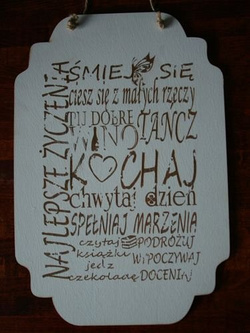 NAJLEPSZE ŻYCZENIA
ŚMIEJ SIĘ
ciesz się z małych rzeczy
PIJ DOBRE
WINO TAŃCZ
KOCHAJ
chwytaj dzień
SPEŁNIAJ MARZENIA
czytaj PODRÓŻUJ
książki WYPOCZYWAJ
jedz
czekoladę DOCENIAJ